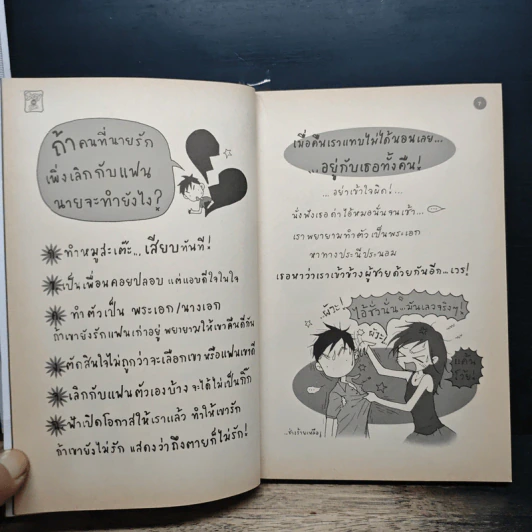 ถ้า คนที่นายรัก
เพิ่งเลิกกับแฟน
นายจะทำยังไง?
ทำหมูสะเต๊ะ... เสียบทันที!
เป็นเพื่อนคอยปลอบ แต่แอบดีใจในใจ
ทำตัวเป็น พระเอก/นางเอก
ถ้าเขายังรักแฟนเก่าอยู่ พยายามให้เขาคืนดีกัน
ตัดสินใจไม่ถูกว่าจะเลือกเขา หรือแฟนเขาดี
เลิกกับแฟนตัวเองบ้าง จะได้ไม่เป็นกิ๊ก
ฟ้าเปิดโอกาสให้เราแล้ว ทำให้เขารัก
ถ้าเขายังไม่รัก แสดงว่าถึงตายก็ไม่รัก!
7
เมื่อคืนเราแทบไม่ได้นอนเลย...
...อยู่กับเธอทั้งคืน!
...อย่าเข้าใจผิด!...
นั่งฟังเธอ ด่าไอ้หมอนั่นจนเช้า...
เราพยายามทำตัวเป็นพระเอก
หาทางประนีประนอม
เธอหาว่าเราเข้าข้างผู้ชายด้วยกันอีก...เวร!
ไอ้ชั่วนั่น
มันเลวจริงๆ!
ผัวะ!
ผัวะ!
แค้น
โว้ย!